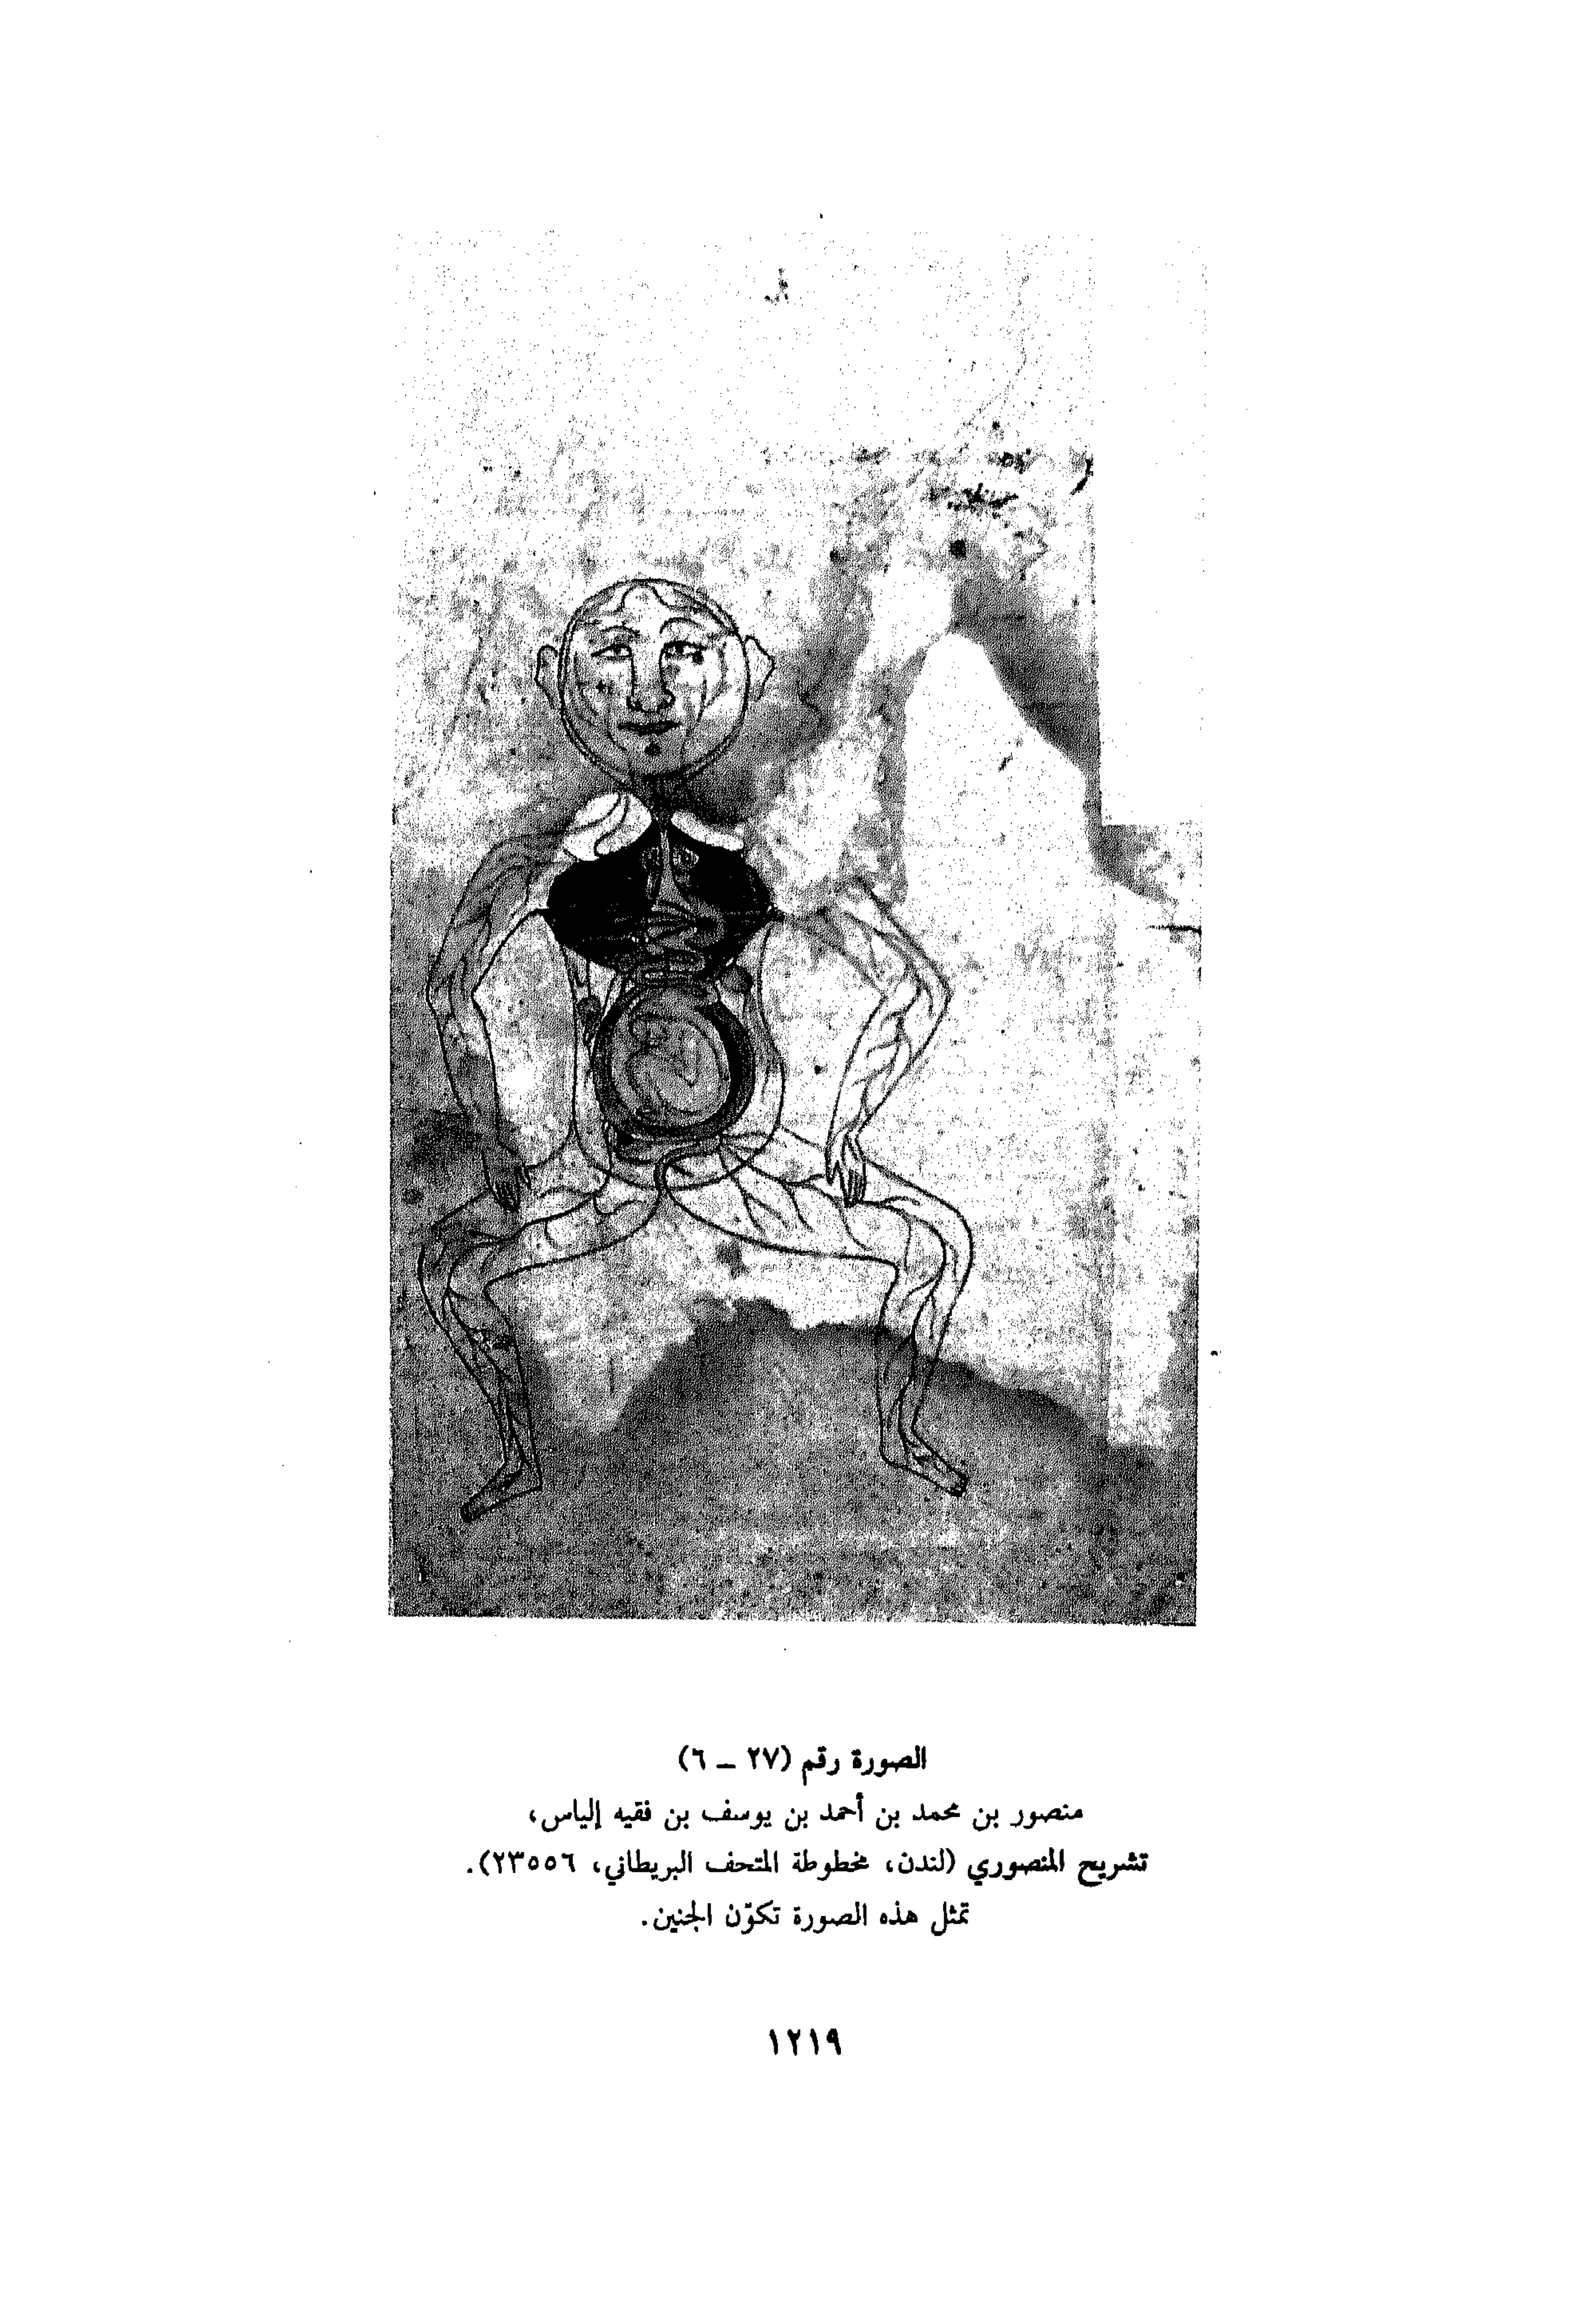 الصورة رقم (٢٧ – ٦)
منصور بن محمد بن أحمد بن يوسف بن فقيه إلياس،
تشريح المنصوري (لندن، مخطوطة المتحف البريطاني، ٢٣٥٥٦).
تمثل هذه الصورة تكوّن الجنين.
١٢١٩